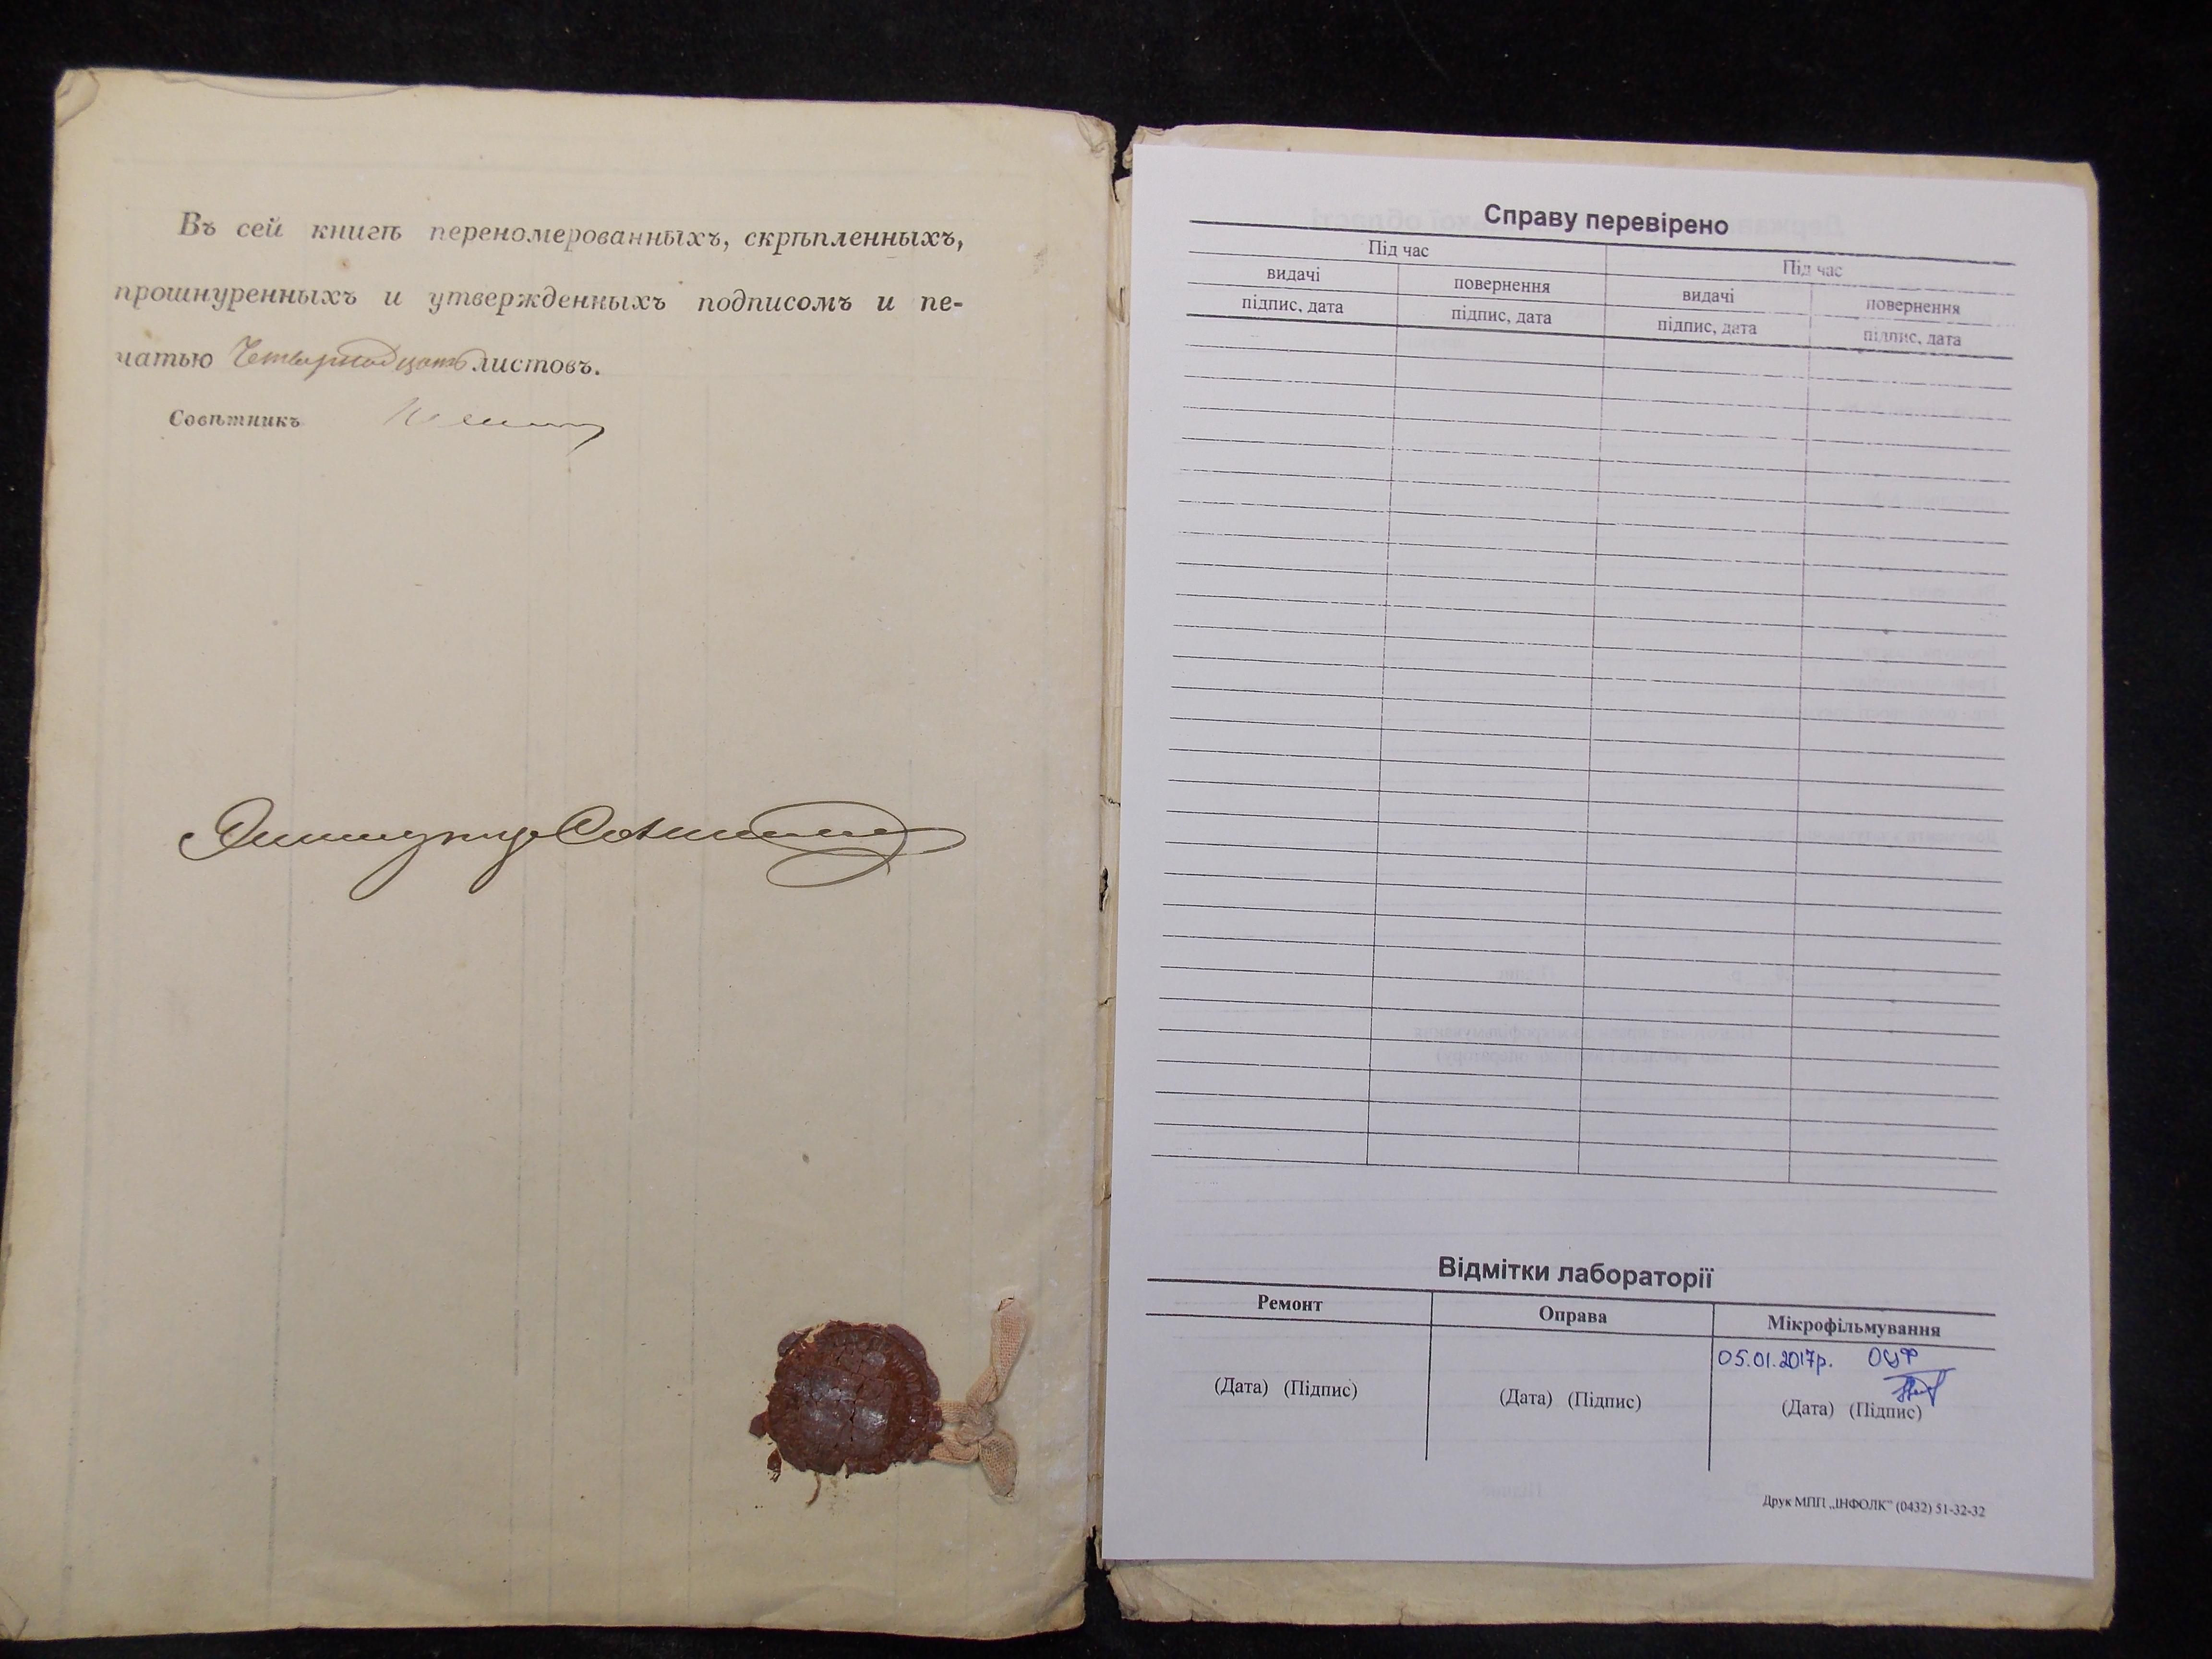 Въ сей книгѣ переномерованныхъ, скрѣпленныхъ,
прошнуренныхъ и утвержденныхъ подписомъ и пе-
чатью Четырнадцать листовъ.
Совѣтникъ
Справу перевірено
Під час Під час
видачі повернення видачі повернення
підпис, дата підпис, дата підпис, дата підпис, дата
Відмітки лабораторії
Ремонт Оправа Мікрофільмування
05.01.2017р. ОЦФ
(Дата) (Підпис) (Дата) (Підпис) (Дата) (Підпис)
Друк МПП „ІНФОЛК" (0432) 51-32-32